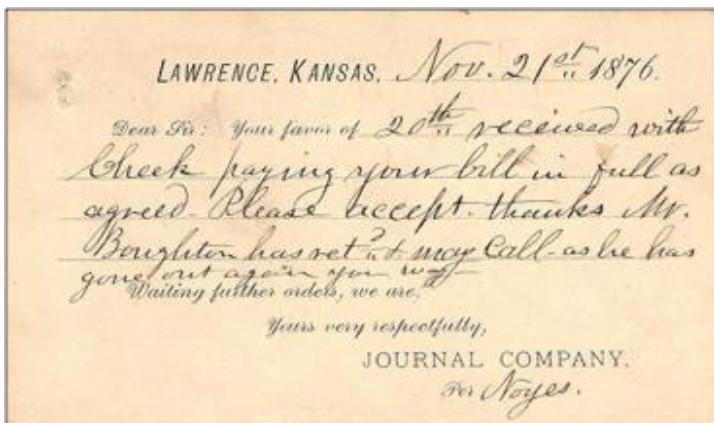 LAWRENCE, KANSAS, Nov. 21st 1876.
Dear Sir: Your favor of 20th received with
Check paying your bill in full as
agreed. Please accept thanks Mr.
Boughton has ret'd & may Call - as he has
gone out again your way
Waiting further orders, we are,
Yours very respectfully,
JOURNAL COMPANY.
Per Noyes.